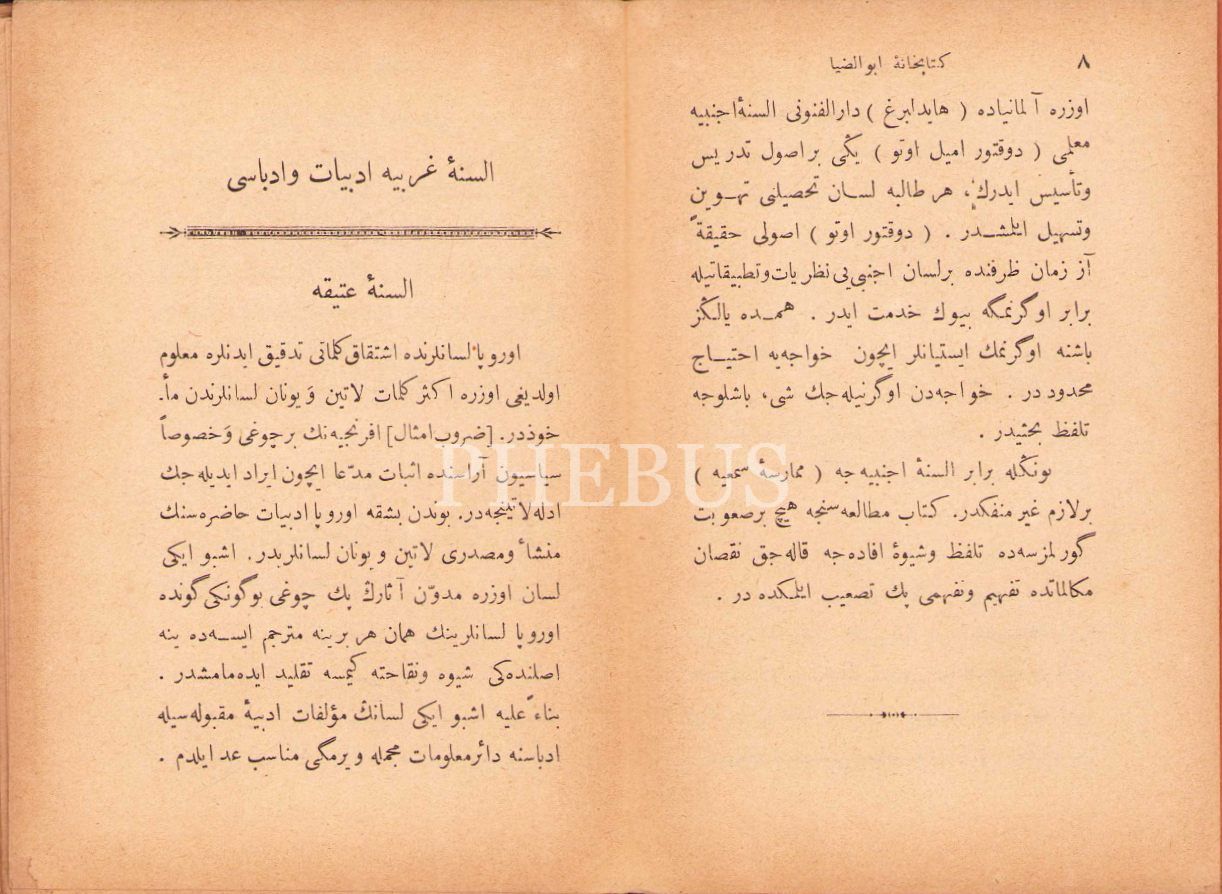 ٨
كتابخانهٔ ابوالضیا
اوزره آلمانیاده ( هایدلبرغ ) دارالفنونی السنهٔ اجنبیه
معلمی ( دوقتور امیل اوتو ) یڭی بر اصول تدریس
وتأسیس ایدرك، هر طالبه لسان تحصیلنی تهوین
وتسهیل ایلشدر . ( دوقتور اوتو ) اصولی حقیقةً
آز زمان ظرفنده برلسان اجنبی یی نظریات وتطبیقاتیله
برابر اوگرنمگه بیوك خدمت ایدر . همده یالڭز
باشنه اوگرنمك ایستیانلر ایچون خواجه یه احتیاج
محدود در . خواجه دن اوگرنیله جك شی، باشلوجه
تلفظ بحثیدر .
بونڭله برابر السنهٔ اجنبیه جه ( ممارسهٔ سمعیه )
برلازم غیر منفکدر. كتاب مطالعه سنجه هیچ برصعوبت
گورلمزسه ده تلفظ وشیوهٔ افاده جه قاله جق نقصان
مكالماتده تفهیم وتفهمی پك تصعیب ایلمكده در .
السنهٔ غربیه ادبیات وادباسی
السنهٔ عتیقه
اوروپا لسانلرنده اشتقاق كلماتی تدقیق ایدنلره معلوم
اولدیغی اوزره اكثر كلمات لاتین وَ یونان لسانلرندن مأ.
خوذدر. [ضروب امثال] افرنجیه نك برچوغی وَخصوصاً
سیاسیون آراسنده اثبات مدّعا ایچون ایراد ایدیله جك
ادله لاتینجه در. بوندن بشقه اوروپا ادبیات حاضره سنك
منشأ ومصدری لاتین ویونان لسانلریدر. اشبو ایكی
لسان اوزره مدوّن آثارڭ پك چوغی بوگونكی گونده
اوروپا لسانلرینك همان هر برینه مترجم ایسه ده ینه
اصلنده كی شیوه ونقاحته كیمسه تقلید ایده مامشدر .
بناءً علیه اشبو ایكی لسانڭ مؤلفات ادبیهٔ مقبوله سیله
ادباسنه دائر معلومات مجمله ویرمگی مناسب عد ایلدم .
PHEBUS